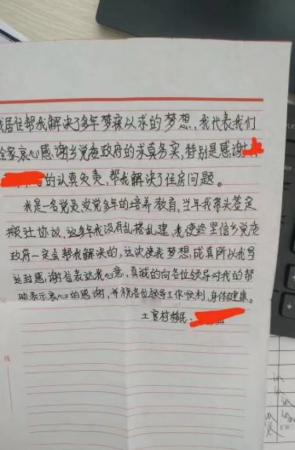 居住帮我解决了多年梦寐以求的梦想，我代表我们
全家衷心感谢乡党委政府的求真务实，特别是感谢
的认真负责，帮我解决了住房问题。
我是一名党员，受党多年的培养教育，当年我带头签定
搬迁协议，这多年我没有乱搭乱建，我使终坚信乡党委
政府一定会帮我解决的，这次使我梦想成真所以我写
感谢信表达我心意，真诚的向各位领导对我的帮
助表示衷心的感谢，并祝各位领导工作顺利，身体健康。
王家村移民：